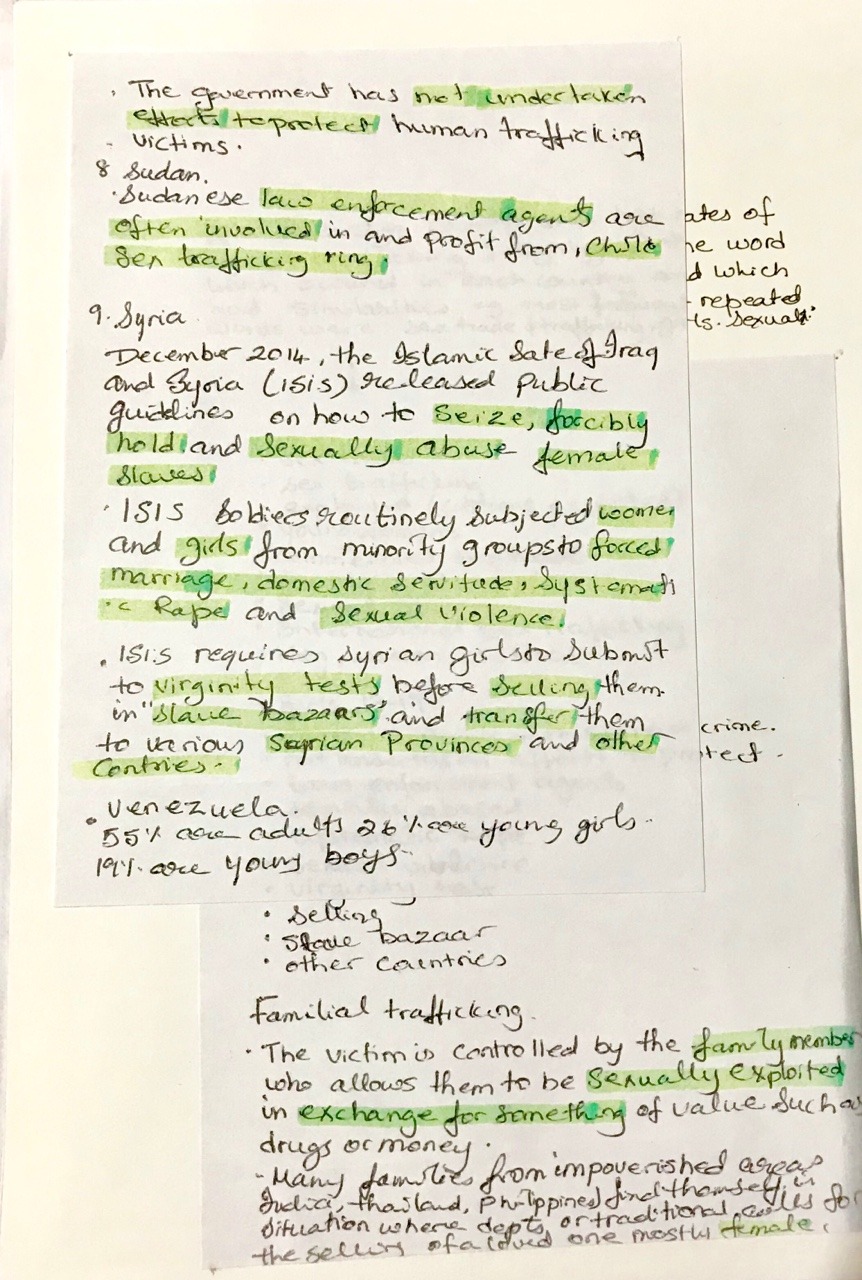 · The government has not undertaken
efforts to protect human trafficking
- victims.
8 Sudan.
· Sudanese law enforcement agents are
often involved in and profit from, child
sex trafficking ring.
9. Syria
December 2014, the Islamic Sate of Iraq
and Syria (isis) released public
guidlines on how to seize, forcibly
hold and sexually abuse female
slaves
· ISIS Soldiers routinely subjected women
and girls from minority groups to forced
marriage, domestic servitude, systemati
c Rape and sexual violence.
· ISIS requires syrian girls to submit
to virginity tests before selling them
in "slave bazaars" and transfer them
to various Syrian Provinces and other
Contries.
· Venezuela.
55% are adults 26% are young girls.
19% are young boys.
ates of
he word
d which
- repeated
ts. sexual
crime.
tect.
· Selling
· slave bazaar
· other countries
Familial trafficking.
· The victim is controlled by the family member
who allows them to be sexually exploited
in exchange for something of value such a
drugs or money.
- Many families from impoverished areas
India, thailand, philippines) find themself in
situation where depts, or traditional calls for
the sellins of a loved one mostly female.